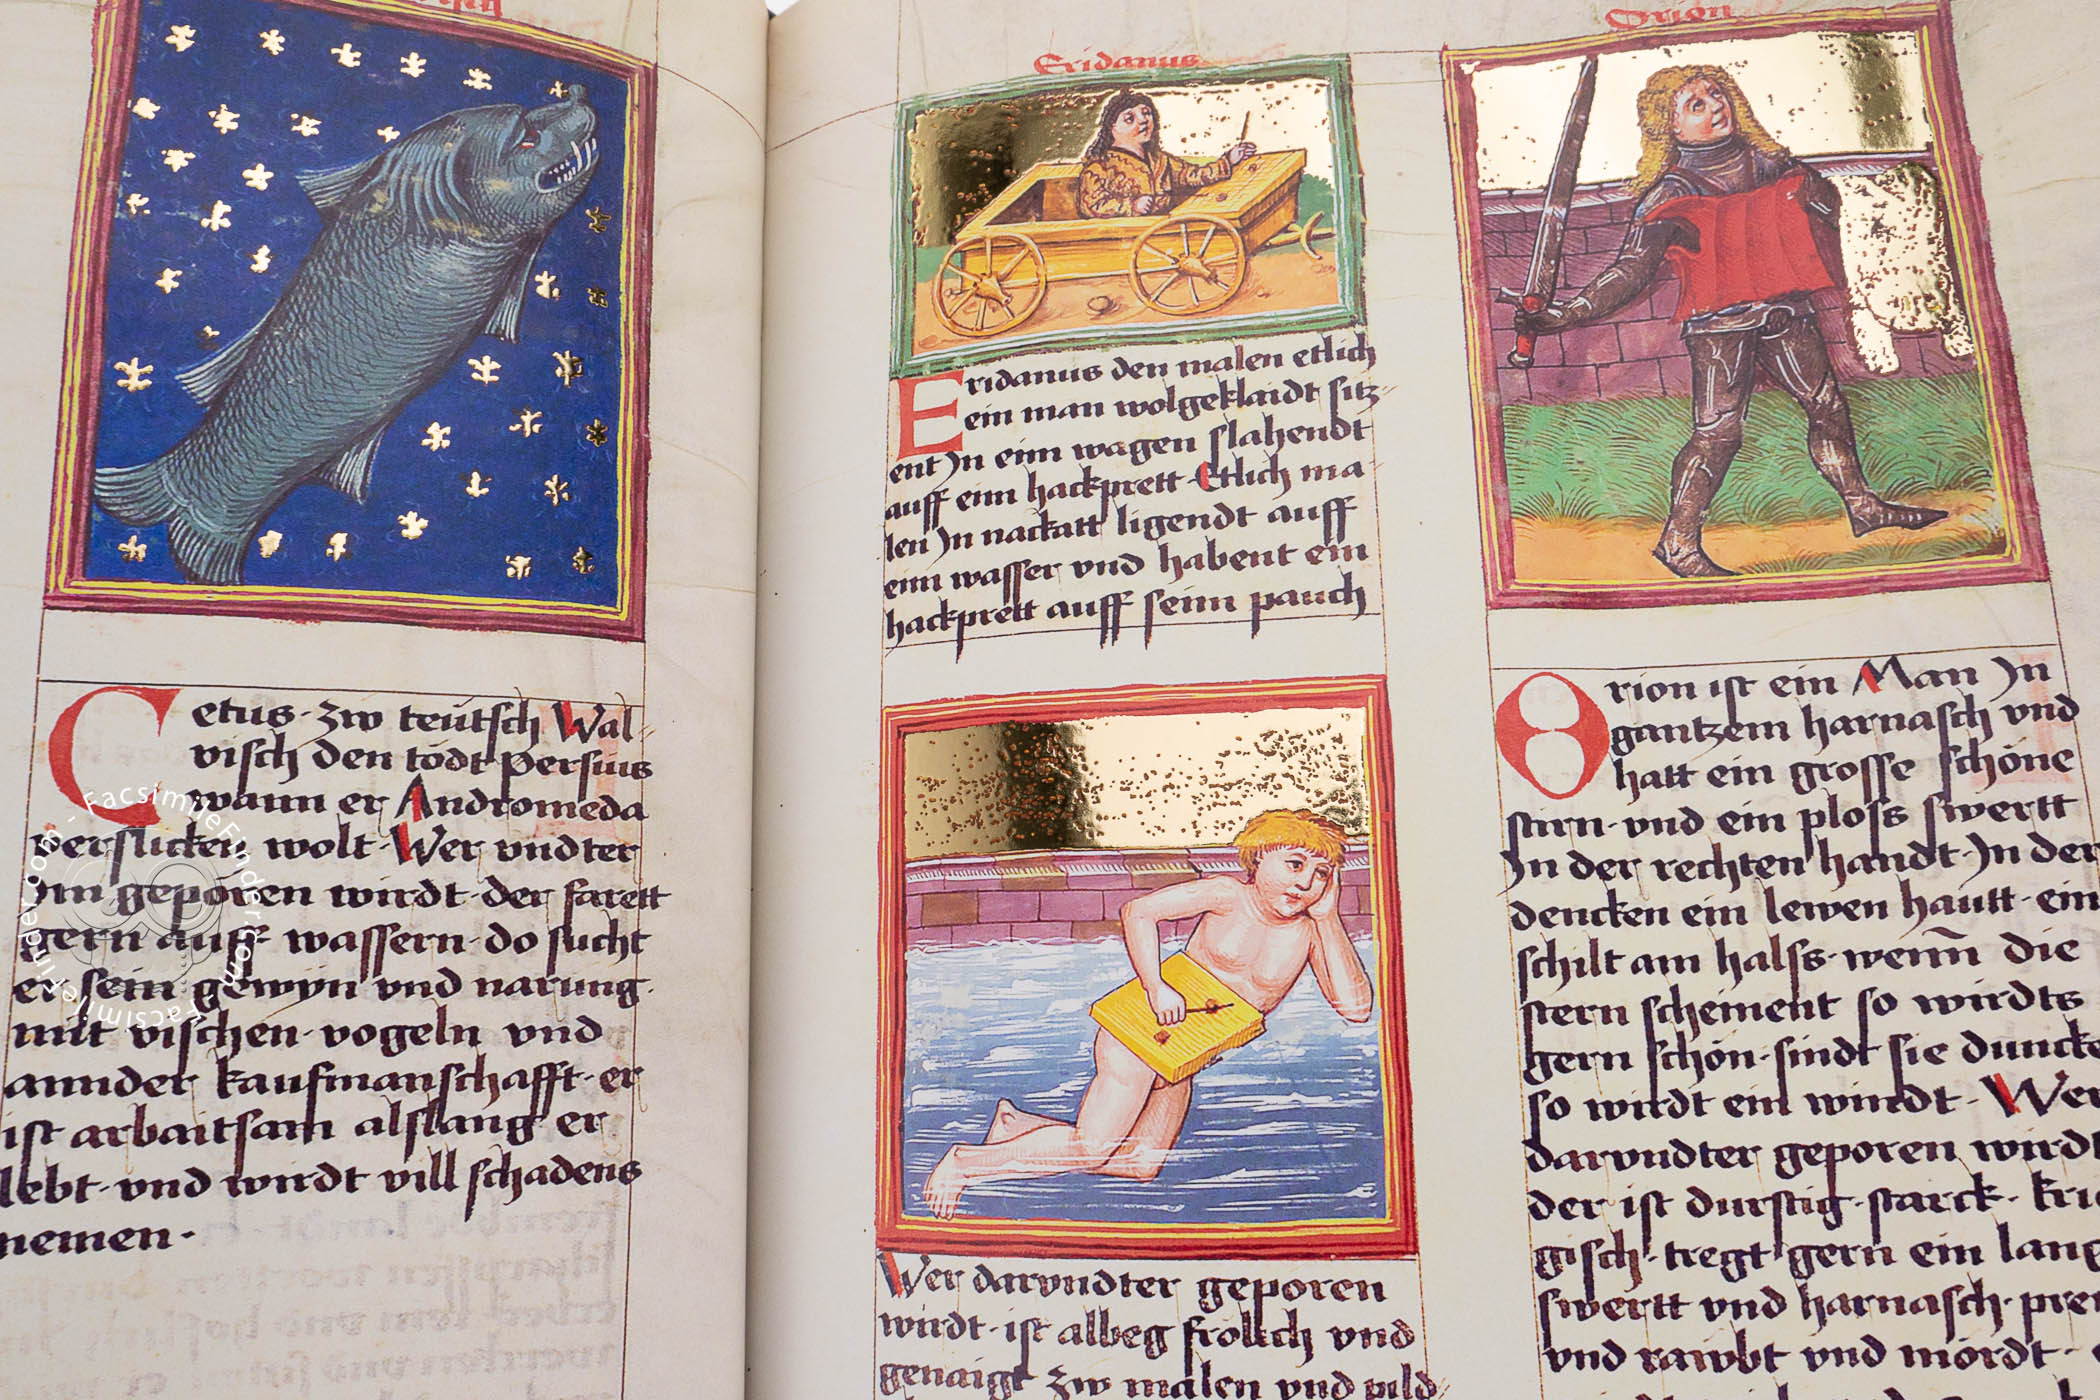 Cetus · zw teutsch Wal-
visch den todt Persuus
wann er Andromeda
verslicken wolt · Wer vndter
Im geporen wirdt · der farett
gern auff wassern · do sucht
er sein gewyn vnd narung ·
mit vischen · vogeln vnd
annder kaufmanschafft · er
ist arbaitsam alslang er
lebt · vnd wirdt vill schadens
nemen ·
Eridanus
Eridanus den malen etlich
ein man wolgeklaidt sitz-
ent In einn wagen slahendt
auff einn hackprett · Etlich ma-
len In nackatt ligendt auff
einn wasser vnd habent ein
hackprett auff seinn pauch
Wer darvndter geporen
wirdt · ist albeg frolich vnd
genaigt zw malen vnd pild-
Orion
Orion ist ein Man In
gantzem harnasch vnd
hatt ein grosse schone
stirn · vnd ein ploss swertt
In der rechten handt · In der
dencken ein lewen hautt · ein
schilt am halss · wenn die
stern scheinent so wirdts
gern schon · sindt sie duncke
so wirdt ein windt · Wer
darvndter geporen wirdt
der ist durstig · starck · kri
gisch · tregt gern ein lang
swertt vnd harnasch · pre
vnd rawbt vnd mordt ·
FacsimileFinder.com · FacsimileFinder.com ·